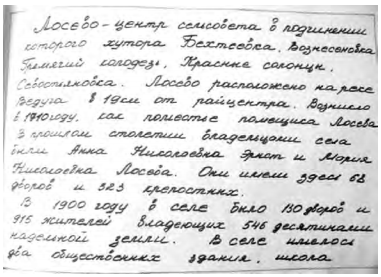 Лосево - центр сельсовета в подчинении
которого хутора Бехтеевка, Вознесеновка
Гремячий колодезь, Красные солонцы,
Севостьяновка. Лосево расположено на реке
Ведуга в 19 км от райцентра. Возникло
в 1910 году, как поместье помещика Лосева
В прошлом столетии владельцами села
были Анна Николаевна Эрнст и Мария
Николаевна Лосева. Они имели здесь 68
дворов и 323 крепостных.
В 1900 году в селе было 130 дворов и
915 жителей владеющих 546 десятинами
надельной земли. В селе имелось
два общественных здания, школа